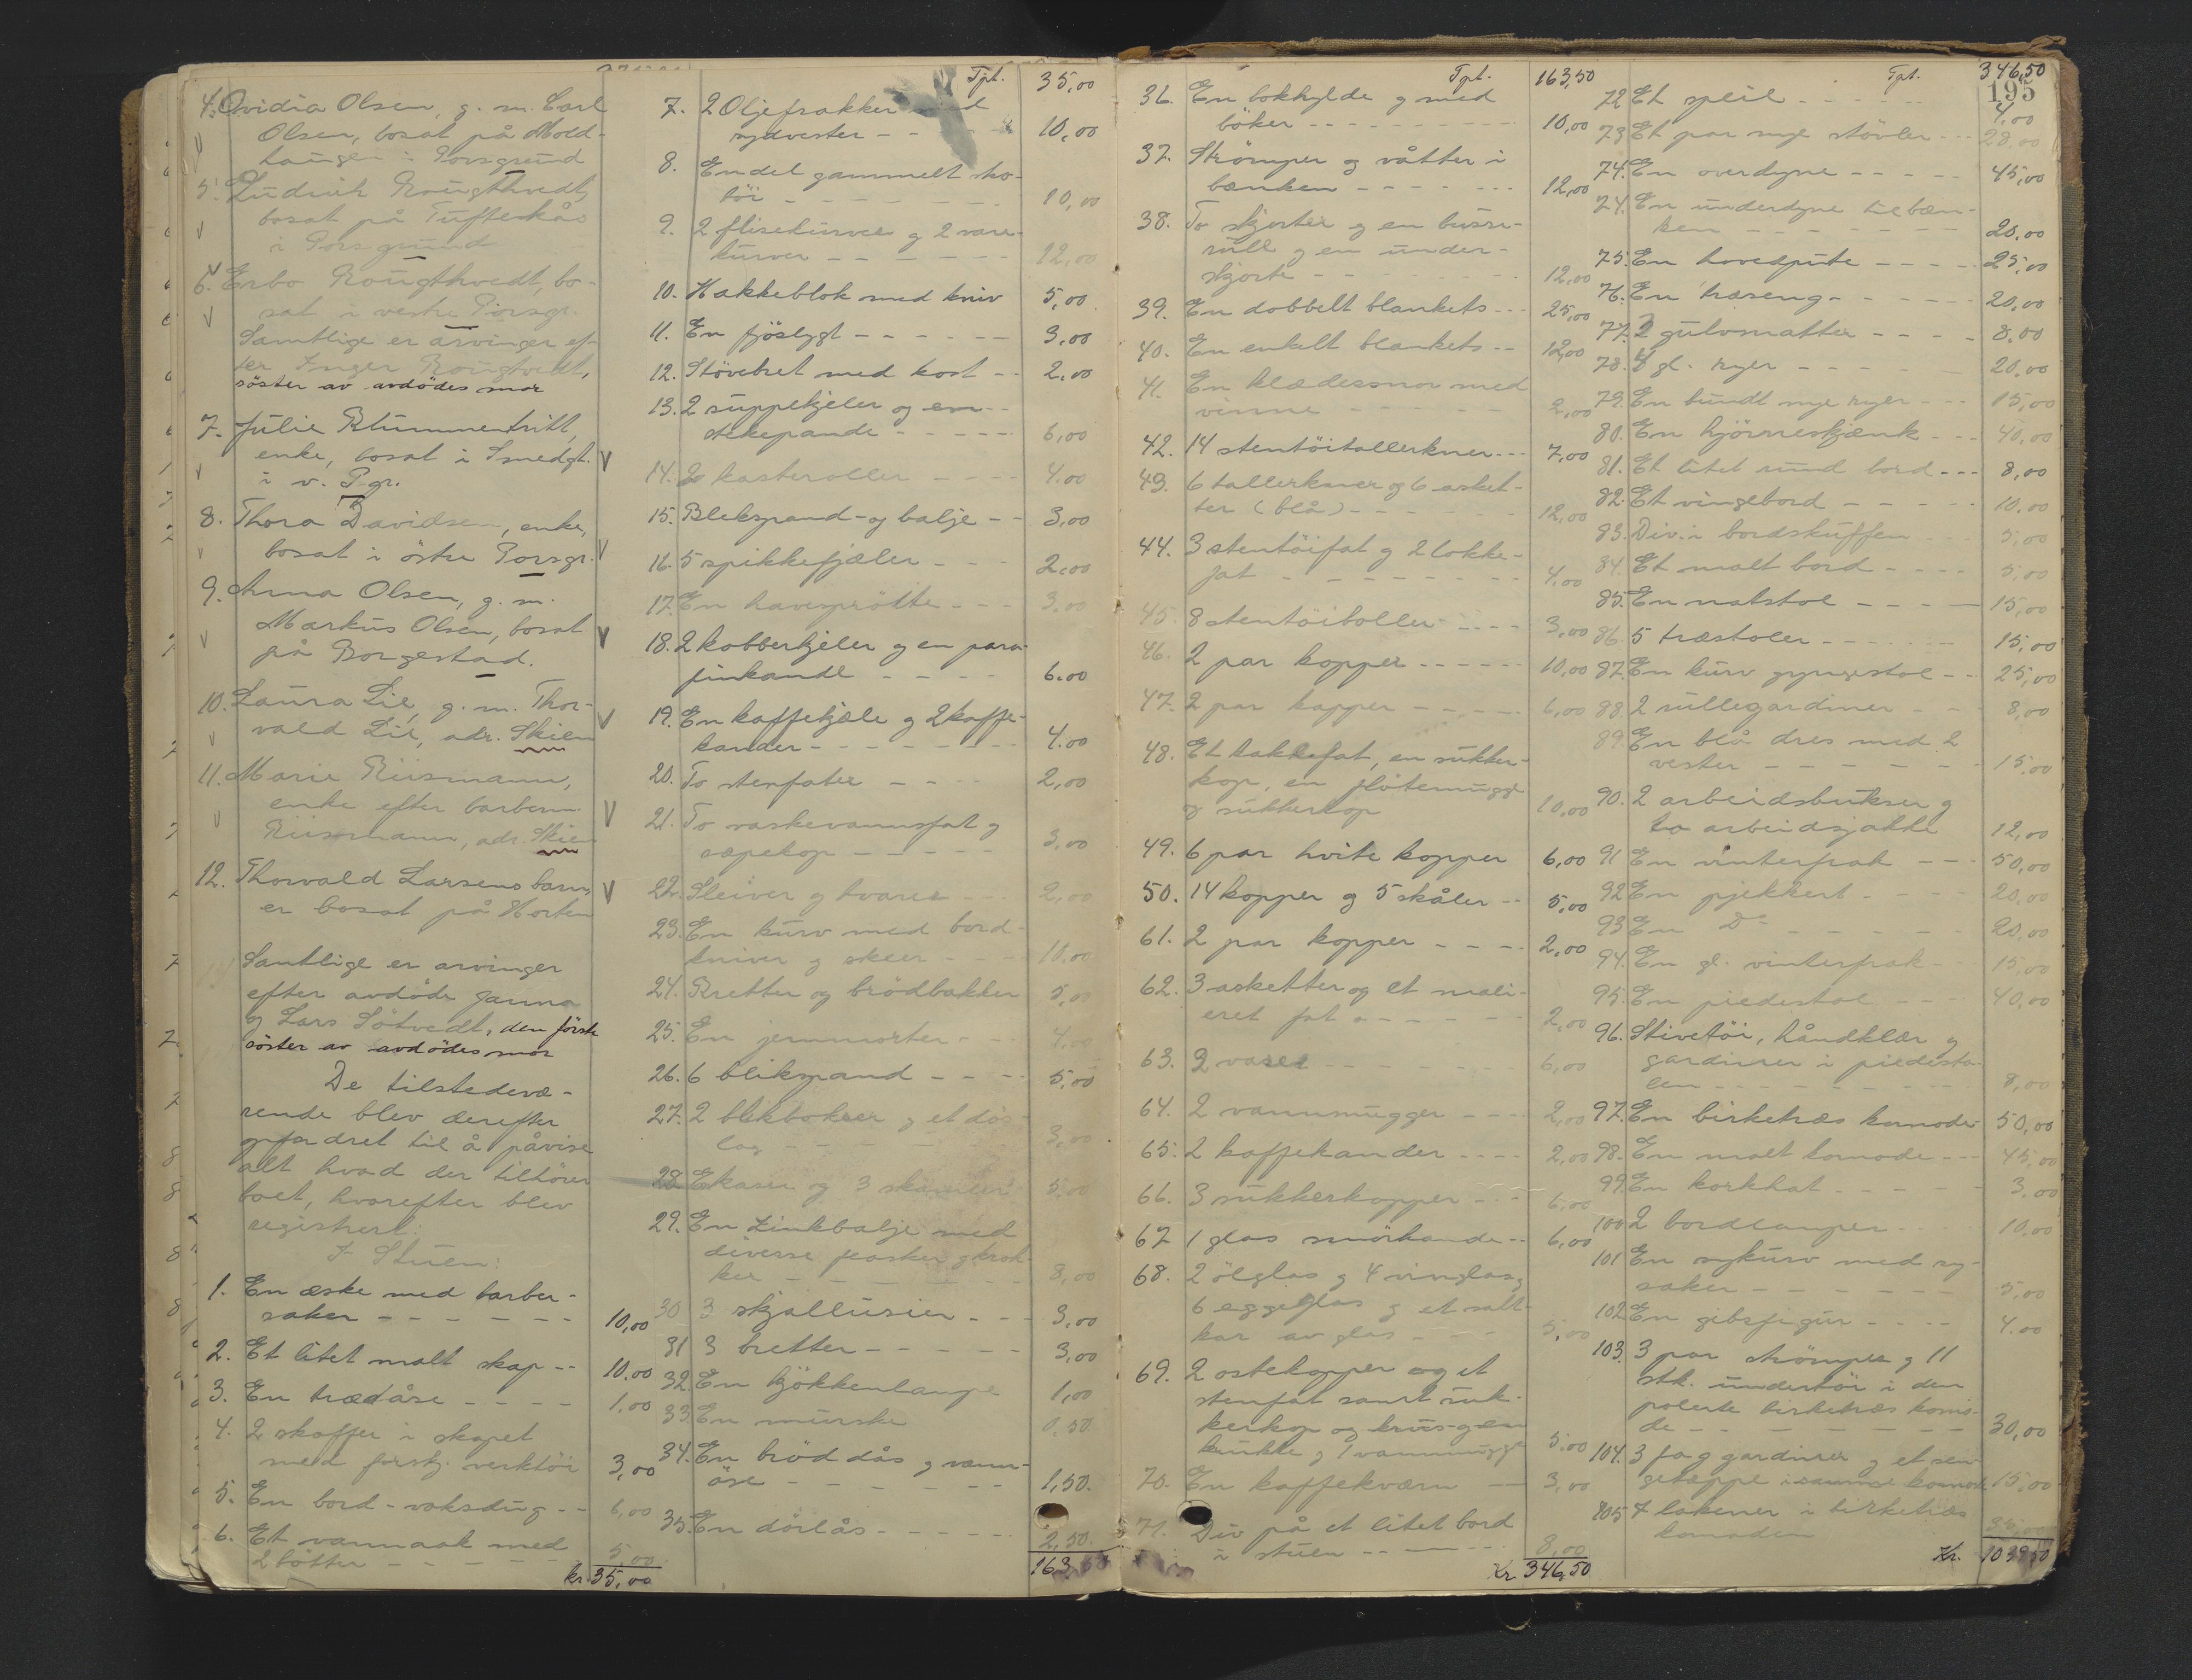 4. Ovidia Olsen, g. m. Carl
Olsen, bosat på Mold-
haugen i Porsgrund
5. Ludvik Rougthvedt,
bosat på Tufteskås
i Porsgrund
6. Erbo Rougthvedt, bo-
sat i vestre Porsgr.
Samtlige er arvinger ef-
ter Inger Rougtvedt,
söster av avdödes mor
7. Julie Blummentritt,
enke, bosat i Smedgt.
i v. Pgr.
8. Thora Davidsen, enke,
bosat i östre Porsgr.
9. Anna Olsen, g. m.
Markus Olsen, bosat
på Borgestad.
10. Laura Lie, g. m. Thor-
vald Lie, adr. Skien
11. Marie Riismann,
enke efter barberm.
Riismann, adr. Skien
12. Thorvald Larsens barn,
er bosat på Horten
Samtlige er arvinger
efter avdöde Janna
og Lars Sötvedt, den förste
söster av avdödes mor
De tilstedevæ-
rende blev derefter
opfordret til å påvise
alt hvad der tilhörer
boet, hvorefter blev
registrert:
I Stuen:
1. En æske med barber-
saker - - - 10,00
2. Et litet malt skap - - 10,00
3. En trædåse - - - 1,00
4. 2 skuffer i skapet
med forskj. verktöi 3,00
5. En bord-voksdug - - 6,00
6. Et vannaak med
2 bötter - - - 5,00
kr. 35,00
Tpt. 35,00
7. 2 Oljefrakker med
sydvester - - 10,00
8. Endel gammelt sko-
töi - - - 10,00
9. 2 flisekurver og 2 vare-
kurver - - - 12,00
10. Hakkeblok med kniv 5,00
11. En fjöslygt - - - 3,00
12. Stövebret med kost - - 2,00
13. 2 suppekjeler og en
stekepande - - - 6,00
14. 2 kasteroller - - - 4,00
15. Blekspand- og balje - - 3,00
16. 5 spikkefjæler - - - 2,00
17. En havesprötte - - - 3,00
18. 2 kobberkjeler og en para-
finkande - - - 6,00
19. En kaffekjele og 2 kaffe-
kander - - - 4,00
20. To stenfater - - - 2,00
21. To vaskevannsfat og
sæpekop - - - 3,00
22. Sleiver og tvarer - - - 2,00
23. En kurv med bord-
kniver og skeer - - - 10,00
24. Bretter og brödbakker 5,00
25. En jernmorter - - - 4,00
26. 6 blikspand - - - 5,00
27. 2 blikbokser og et dös-
lag - - - 3,00
28. 2 kasser og 3 skamler 5,00
29. En zinkbalje med
diverse flasker og krok-
ker - - - 8,00
30 3 skjallusier - - - 3,00
31 3 bretter - - - 3,00
32. En kjökkenlampe 1,00
33. En murske 0,50
34. En bröddås og vann-
öse - - - 1,50.
35. En dörlås - - - 2,50.
163,50
Tpt. 163,50
36. En bokhylde og med
böker - - - 10,00
37. Strömper og våtter i
bænken - - - 12,00
38. To skjorter og en busse-
rull og en under-
skjorte - - - 12,00
39. En dobbelt blankets - - 25,00
40. En enkelt blankets - - 12,00
41. En klædessnor med
vinne - - - 2,00
42. 14 stentöitallerkner - - 7,00
43. 6 tallerkner og 6 asket-
ter (blå) - - - 12,00
44. 3 stentöifat og 2 lokke-
fat - - - 4,00
45. 8 stentöiboller - - - 3,00
46. 2 par kopper - - - 10,00
47. 2 par kopper - - - 6,00
48. Et kakefat, en sukker-
kop, en flötemugge
og sukkerkop 10,00
49. 6 par hvite kopper 6,00
50. 14 kopper og 5 skåler - - 5,00
61. 2 par kopper - - - 2,00
62. 3 asketter og et mali-
eret fat - - - 2,00
63. 2 vaser - - - 6,00
64. 2 vannmugger - - - 2,00
65. 2 kaffekander - - - 2,00
66. 3 sukkerkopper - - - 6,00
67. 1 glas smörkande - - 6,00
68. 2 ölglas og 4 vinglas,
6 eggeglas og et salt-
kar av glas - - - 5,00
69. 2 ostekopper og et
stenfat samt suk-
kerkop og krus og en
krukke og 1 vannmugge 5,00
70. En kaffekværn - - 3,00
71. Div på et litet bord
i stuen - - - 8,00
Kr 346,50
Tpt. 346,50
195
72 Et speil - - - 4,00
73 Et par nye stövler - - - 28,00
74. En overdyne - - - 45,00
74. En underdyne til bæn-
ken - - - 20,00
75. En hovedpute - - - 25,00
76. En træseng - - - 20,00
77. 2 gulvmatter - - - 8,00
78. 4 gl. ryer - - - 20,00
79. En bundt nye ryer - - - 15,00
80. En hjörneskjænk - - - 40,00
81. Et litet rund bord - - - 8,00
82. Et vingebord - - - 10,00
83. Div. i bordskuffen - - - 5,00
84. Et malt bord - - - 5,00
85. En natstol - - - 15,00
86. 5 træstoler - - - 15,00
87. En kurv gyngestol - - 25,00
88. 2 rullegardiner - - - 8,00
89. En blå dres med 2
vester - - - 15,00
90. 2 arbeidsbukser og
to arbeidsjakke 12,00
91 En vinterfrak - - - 50,00
92 En pjekkert - - - 20,00
93 En Do - - - 20,00
94. En gl. vinterfrak - - 15,00
95. En piedestal - - - 40,00
96. Stivetöi, håndklær og
gardiner i piedesta-
len - - - 8,00
97. En birketræs komode 50,00
98. En malt komode - - - 45,00
99. En korkhat - - - 3,00
100 2 bordlamper - - - 10,00
101 En sykurv med sy-
saker - - - 5,00
102 En gibsfigur - - - 4,00
103. 3 par strömper og 11
stk. undertöi i den
polerte birketræs komo-
de - - - 30,00
104. 3 fag gardiner og et sen-
geteppe i samme komode 15,00
105 7 lakener i birketræs
komoden 35,00
Kr. 1039,50